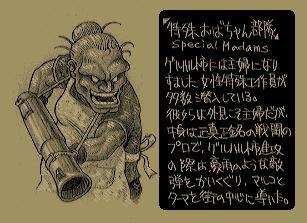 "特殊おばちゃん部隊"
Special Madams
ゲルハルト市には主婦になり
すました女性特殊工作員が
多数潜入している。
彼女らは外見こそ主婦だが、
中身は正真正銘の戦闘の
プロで、ゲルハルト市進攻
の際は豪雨のような敵
弾をかいくぐり、マルコと
タマを街の中心に導いた。